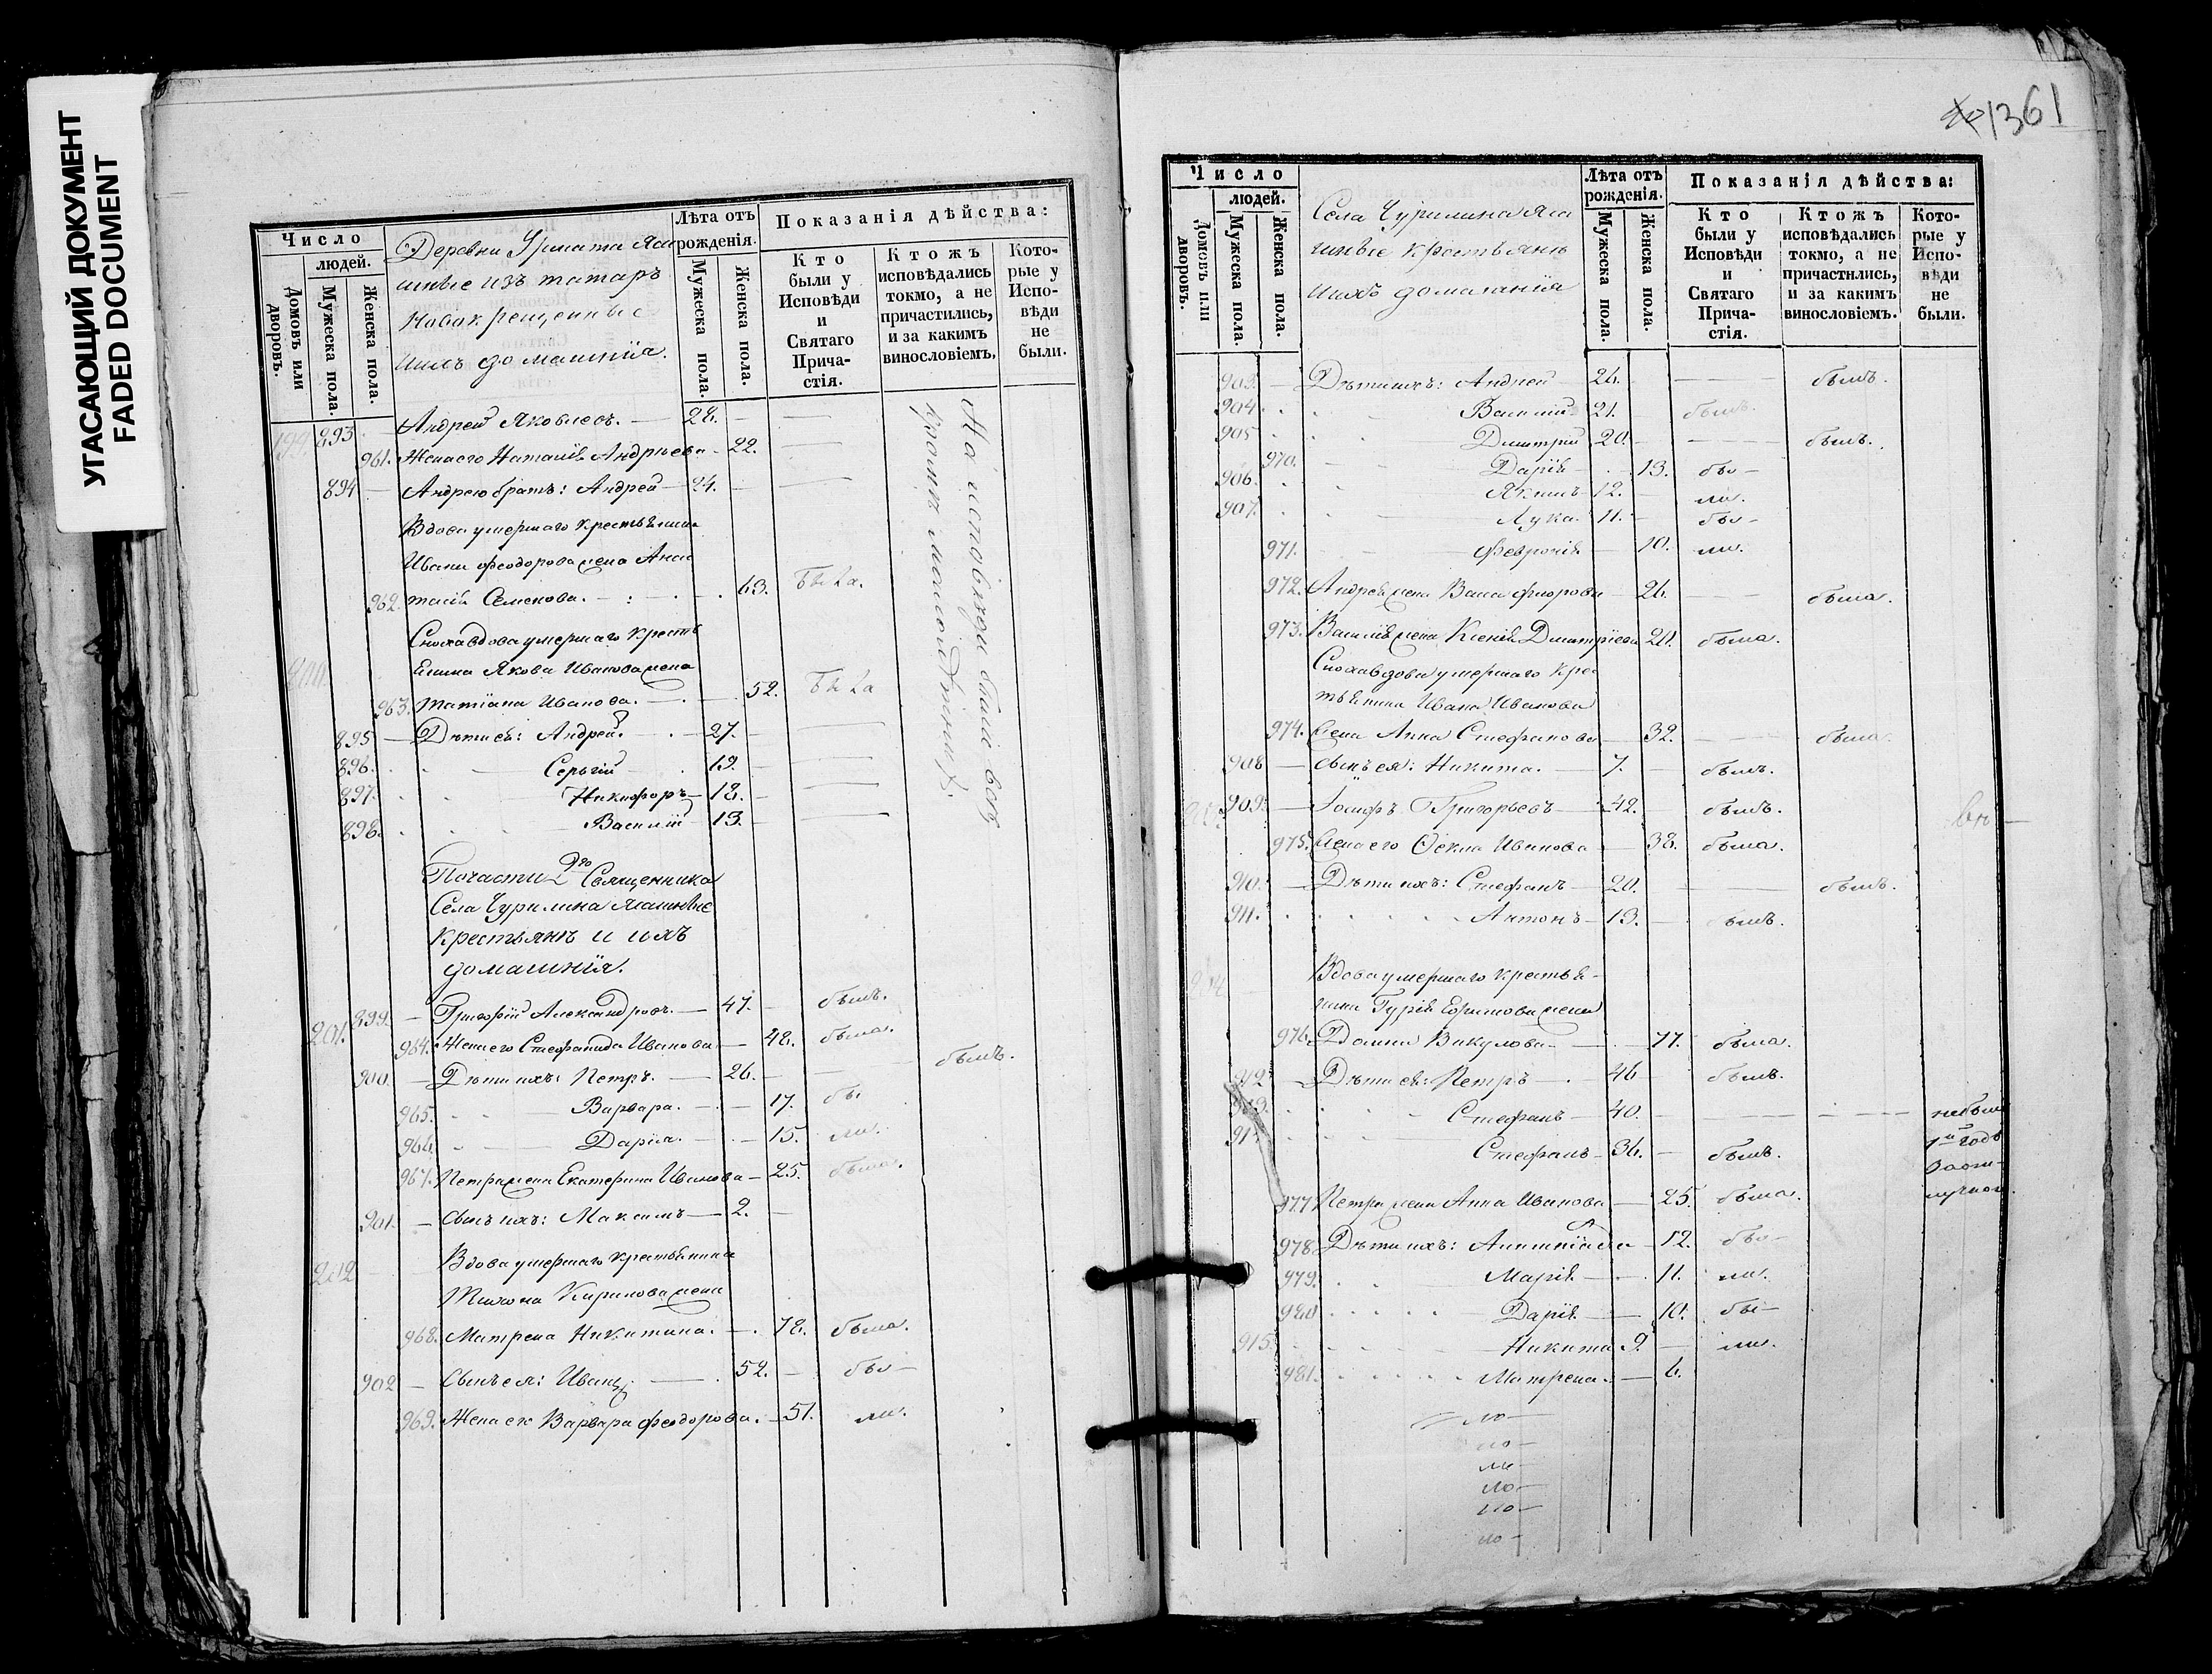 УГАСАЮЩИЙ ДОКУМЕНТ
FADED DOCUMENT
Число
людей.
Домовъ или дворовъ.
Мужеска пола.
Женска пола.
Деревни Урмата Яса
шные изъ татаръ
Новокрещенные
ихъ домашнія.
Лѣта отъ рожденія.
Мужеска пола.
Женска пола.
Показанія дѣйства:
Кто были у Исповѣди и Святаго Причастія.
Ктожъ исповѣдались токмо, а не причастились, и за какимъ винословіемъ.
Которые у Исповѣди не были.
199. 893. Андрей Яковлевъ. 28.
961. Жена его Наталія Андрѣева 22.
894 Андрею братъ: Андрей 24.
Вдова умершаго крестьянина
Ивана Феодорова жена Анас
962. тасія Семенова. 63. Была.
Сноха вдова умершаго кресть
200. янина Якова Иванова жена
963. Татіана Иванова. 52. Была
895 Дѣти ея: Андрей. 27.
896. Сергій 19.
897. Никифоръ 18.
898. Василій 13.
На исповѣди были всѣ
кромѣ малолѣтних.
По части 2го Священника
Села Чурилина Ясашные
крестьянѣ и ихъ
домашнія.
201. 899. Григорій Александровъ. 47. былъ.
964. Жена его Стефанида Иванова 48. была.
900. Дѣти ихъ: Петръ. 26. былъ.
965. Варвара. 17. бы
966. Дарія. 15. ли.
967. Петра жена Екатерина Иванова 25. была.
901. Сынъ ихъ: Максимъ 2.
202 Вдова умершаго крестьянина
Тихона Кирилова жена
968. Матрена Никитина. 78. была.
902 Сынъ ея: Иванъ. 52. бы
969. Жена его Варвара Феодорова. 51. ли.
1361
Число
людей.
Домовъ или дворовъ.
Мужеска пола.
Женска пола.
Села Чурилина Яса
шные крестьянѣ
ихъ домашнія
Лѣта отъ рожденія.
Мужеска пола.
Женска пола.
Показанія дѣйства:
Кто были у Исповѣди и Святаго Причастія.
Ктожъ исповѣдались токмо, а не причастились, и за какимъ винословіемъ.
Которые у Исповѣди не были.
903. Дѣти ихъ: Андрей 26. былъ.
904. Василій 21. былъ.
905 Дмитрій 20. былъ.
970. Дарія 13. бы
906. Якимъ 12. ли.
907. Лука. 11. бы
971. Феуронія 10. ли.
972. Андрея жена Васа Флорова 26. была.
973. Василія жена Ксенія Дмитріева 20. была.
Сноха вдова умершаго крес
тьянина Ивана Иванова
974. жена Анна Стефанова 32. была.
908 Сынъ ея: Никита. 7. былъ.
909. Іосифъ Григорьевъ 42. былъ.
975. Жена его Ѳекла Иванова 38. была.
910. Дѣти ихъ: Стефанъ 20. былъ.
911. Антонъ 13. былъ.
204 Вдова умершаго крестья
нина Гурія Ефимова жена
976. Домна Викулова 77. была.
912 Дѣти ея: Петръ 46 былъ.
913. Стефанъ 40. небылъ
91 Стефанъ 36. былъ. 1й годъ
977. Петра жена Анна Иванова 25. была.
978. Дѣти ихъ: 12. бы
979. Марія 11. ли.
980 Дарія 10. бы
915. Никита 9. ли.
981. Матрена. 6.